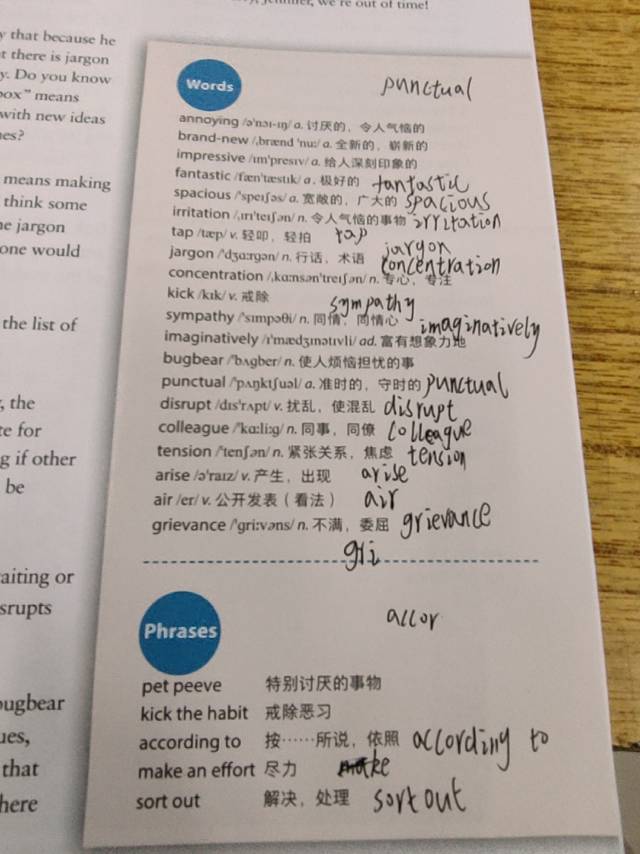 Jennifer, we're out of time!
y that because he
t there is jargon
y. Do you know
box" means
with new ideas
nes?
means making
think some
ne jargon
one would
the list of
, the
te for
g if other
be
aiting or
srupts
ougbear
ues,
that
here
Words
punctual
annoying /ə'nɔɪ-ɪŋ/ a. 讨厌的，令人气恼的
brand-new /ˌbrænd 'nuː/ a. 全新的，崭新的
impressive /ɪm'presɪv/ a. 给人深刻印象的
fantastic /fæn'tæstɪk/ a. 极好的 fantastic
spacious /'speɪʃəs/ a. 宽敞的，广大的 spacious
irritation /ˌɪrɪ'teɪʃən/ n. 令人气恼的事物 irritation
tap /tæp/ v. 轻叩，轻拍 tap
jargon /'dʒɑːrgən/ n. 行话，术语 jargon
concentration /ˌkɑːnsən'treɪʃən/ n. 专心，专注 concentration
kick /kɪk/ v. 戒除
sympathy /'sɪmpəθi/ n. 同情，同情心 sympathy
imaginatively /ɪ'mædʒɪnətɪvli/ ad. 富有想象力地 imaginatively
bugbear /'bʌgber/ n. 使人烦恼担忧的事
punctual /'pʌŋktʃuəl/ a. 准时的，守时的 punctual
disrupt /dɪs'rʌpt/ v. 扰乱，使混乱 disrupt
colleague /'kɑːliːg/ n. 同事，同僚 colleague
tension /'tenʃən/ n. 紧张关系，焦虑 tension
arise /ə'raɪz/ v. 产生，出现 arise
air /er/ v. 公开发表（看法） air
grievance /'griːvəns/ n. 不满，委屈 grievance
gri
Phrases
accor
pet peeve 特别讨厌的事物
kick the habit 戒除恶习
according to 按……所说，依照 according to
make an effort 尽力 make
sort out 解决，处理 sort out